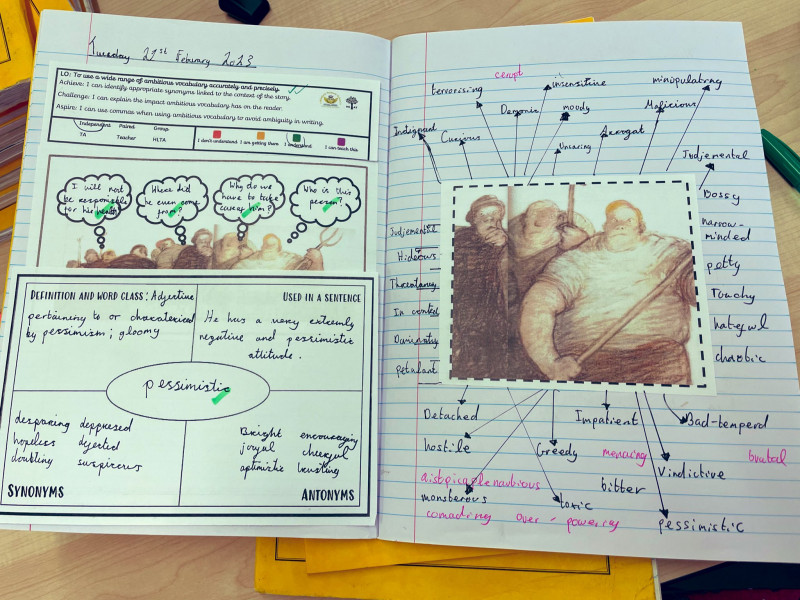 Tuesday 21st Febuary 2023
LO: To use a wide range of ambitious vocabulary accurately and precisely.
Achieve: I can identify appropriate synonyms linked to the context of the story.
Challenge: I can explain the impact ambitious vocabulary has on the reader.
Aspire: I can use commas when using ambitious vocabulary to avoid ambiguity in writing.
Independent Paired Group
TA Teacher HLTA
I don't understand I am getting there I understand I can teach this
I will not be responsible for his health?
Where did he even come from?
Why do we have to take care of him?
Who is this person?
DEFINITION AND WORD CLASS: Adjective
pertaining to or characterised
by pessimism; gloomy
USED IN A SENTENCE
He has a very extremly
negative and pessimistic
attitude.
pessimistic
desparing deppressed
hopeless dejerted
doubting suspicous
SYNONYMS
Bright encouraging
joyul cheerful
optimistic trusting
ANTONYMS
terrorising
insensitive
minipulatrag
Demonic
moody
Malicious
Indignant
Curious
Uncaring
Arrogat
Judjemental
Bossy
narrow-
minded
petty
Touchy
hatefwl
chaotic
Judjemental
Hideous
Threatang
petulant
Detached
Impatient
Bad-temperd
hostile
Greedy
menacing
brutal
Vindictive
bitter
monsterous
toxic
comading over-powering
pessimistic